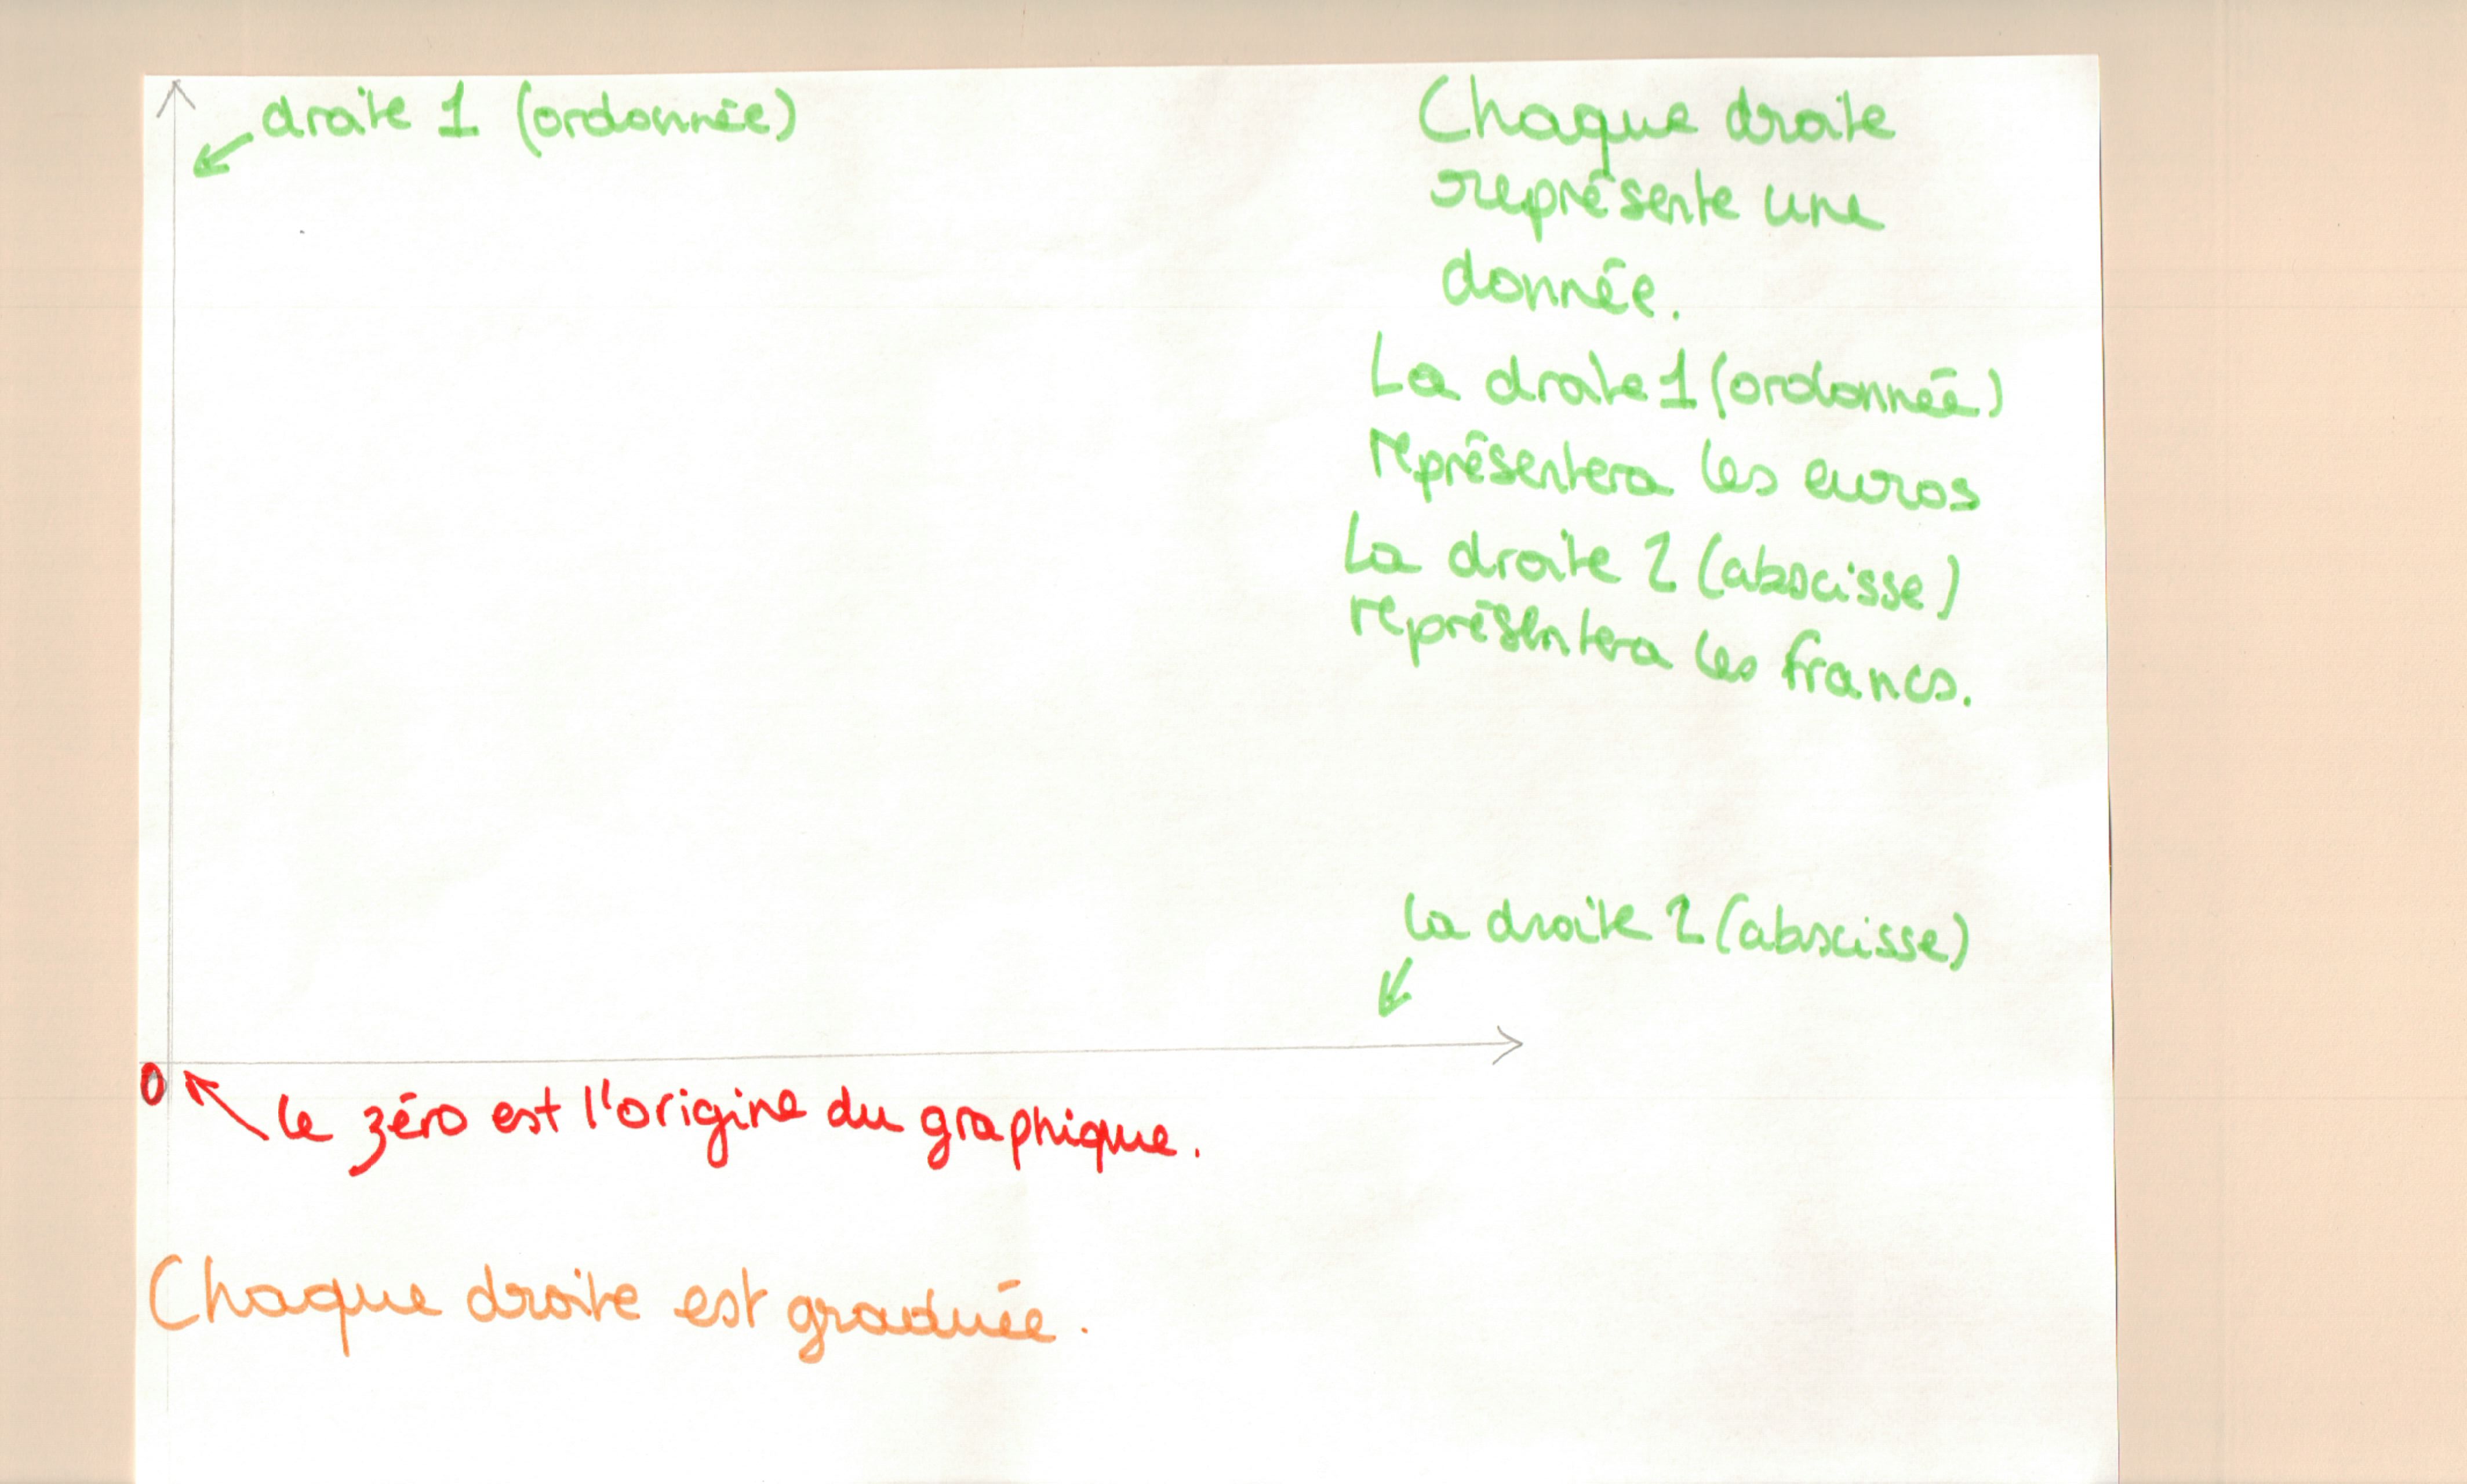 droite 1 (ordonnée)
Chaque droite
représente une
donnée.
La droite 1 (ordonnée)
représentera les euros
La droite 2 (abscisse)
représentera les francs.
la droite 2 (abscisse)
0
le zéro est l'origine du graphique.
Chaque droite est graduée.